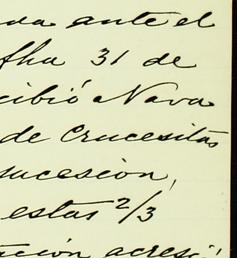 da ante el
fha 31 de
cibió Nava
de Crucesitas
sucesion,
estas 2/3
ción acreció